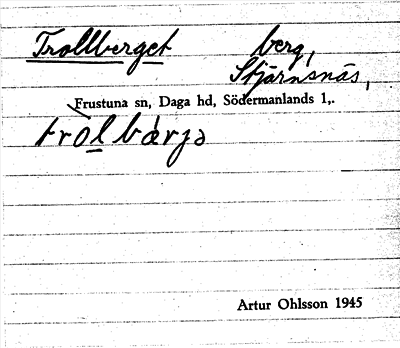 Trollberget berg,
Stjärnsnäs,
Frustuna sn, Daga hd, Södermanlands l,.
tròlbárjə
Artur Ohlsson 1945